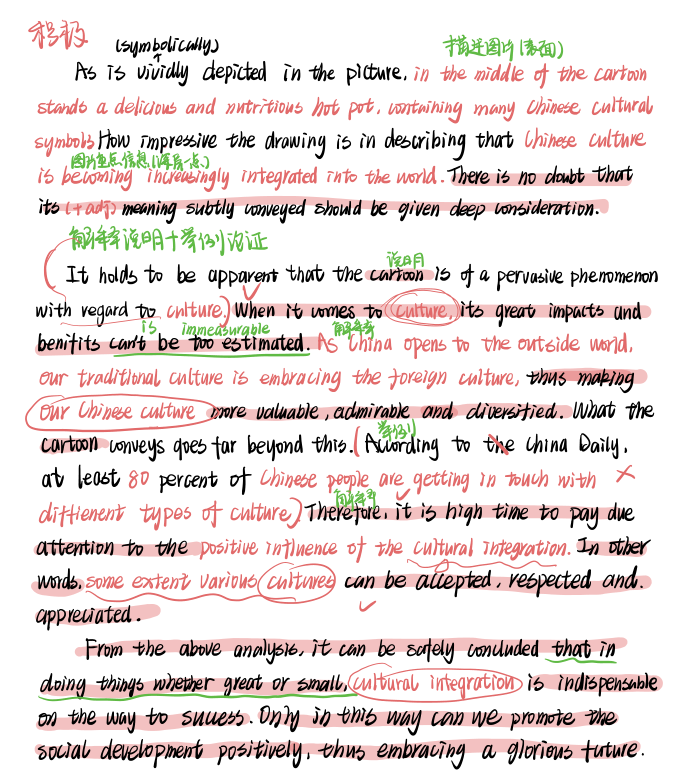 积极
(symbolically) 描述图片(表面)
As is vividly depicted in the picture, in the middle of the cartoon
stands a delicious and nutritious hot pot, containing many Chinese cultural
symbols. How impressive the drawing is in describing that Chinese culture
图片重点信息(再高一点)
is becoming increasingly integrated into the world. There is no doubt that
its (+adj) meaning subtly conveyed should be given deep consideration.
解释说明+举例论证
说明
It holds to be apparent that the cartoon is of a pervasive phenomenon
with regard to culture. When it comes to culture, its great impacts and
is immeasurable 解释
benifits can't be too estimated. As China opens to the outside world,
our traditional culture is embracing the foreign culture, thus making
our Chinese culture more valuable, admirable and diversified. What the
举例
cartoon conveys goes far beyond this. (According to the China Daily,
at least 80 percent of Chinese people are getting in touch with
解释
diffienent types of culture). Therefore, it is high time to pay due
attention to the positive influence of the cultural integration. In other
words, some extent various cultures can be accepted, respected and
appreciated.
From the above analysis, it can be safely concluded that in
doing things whether great or small, cultural integration is indispensable
on the way to success. Only in this way can we promote the
social development positively, thus embracing a glorious future.